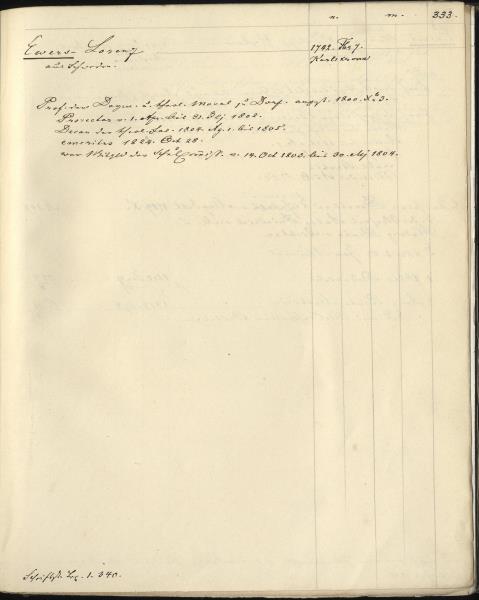 n. m. 333.
Ewers Lorenz 1742. Xbr 7.
aus Schweden. Karlskrona
Prof. der Dogm. u. theol. Moral zu Dorp. angest. 1800. Xbr 3.
Prorector v. 1. Apr. bis 31. Jlj 1802.
Decan der theol. Fac. 1804. Ag. 1. bis 1805.
emeritus 1824. Oct 28.
war Mitgld der Schulcommiss. v. 14. Oct 1803. bis 30. Mj 1804.
Schriftst. Lex. 1. 540.